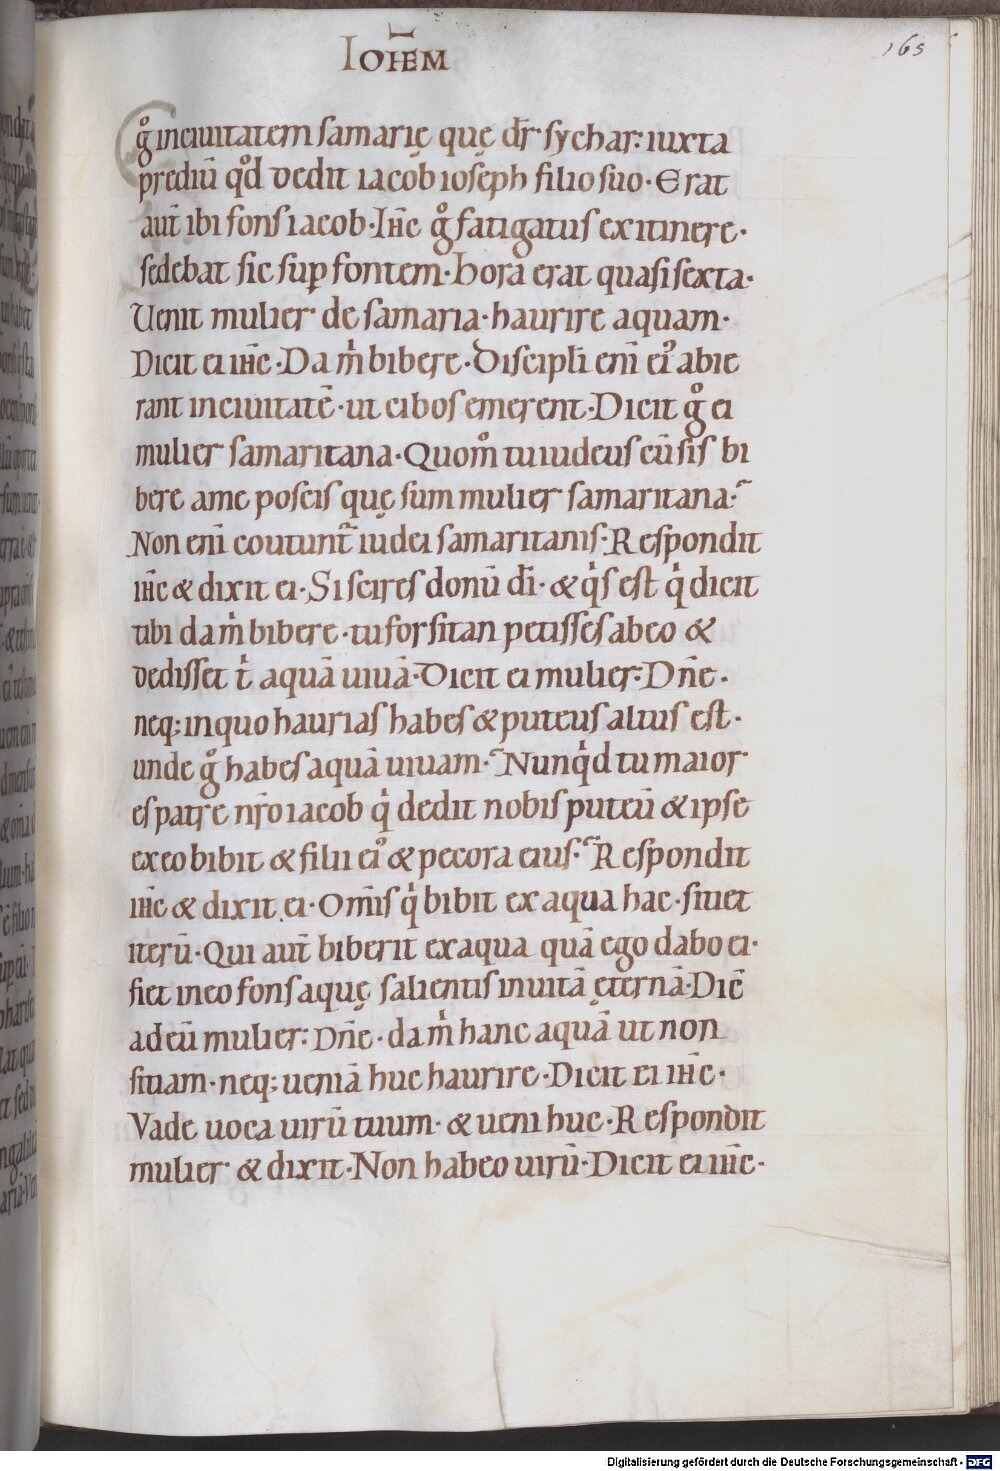 IOHEM̄
165
gͦ inciuitatem samarię quę dr̄ sychar: iuxta
prediū qd̊ dedit iacob ioseph filio suo· Erat
aut̄ ibi fons iacob· Ih̄c gͦ fatigatus exitinere·
sedebat sic sup̱ fontem· hora erat quasi sexta·
Uenit mulier de samaria· haurire aquam·
Dicit ei ih̄c· Da m̍ bibere· Discipli̅ eni̅ ei᾿ abie
rant inciuitatē· ut cibos emerent· Dicit gͦ ei
mulier samaritana· Quom̊ tu iudeus cū sis bi
bere ame poscis quę sum mulier samaritana·
Non eni̅ coutunt̃ iudei samaritanis· Respondit
ih̄c & dixit ei· Si scires donū dı̄· & q̍s est q̍ dicit
tibi da m̍ bibere· tu forsitan petisses abeo &
dedisset t̍ aquā uiuā· Dicit ei mulier: Dn̄e·
neq; inquo haurias habes & puteus altus est·
unde gͦ habes aquā uiuam· Nunq̍d tu maior
es patre nr̄o iacob q̍ dedit nobis puteū & ipse
exeo bibit & filii ei᾿ & pecora eius· Respondit
ih̄c & dixit ei· Om̄is q̍ bibit ex aqua hac· sitiet
iterū· Qui aut̄ biberit exaqua quā ego dabo ei·
fiet ineo fons aquę salientis inuitā ęternā· Dic̄
adeū mulier: Dn̄e· da m̍ hanc aquā ut non
sitiam· neq; ueniā huc haurire· Dicit ei ih̄c·
Vade uoca uirū tuum· & ueni huc· Respondit
mulier & dixit· Non habeo uirū· Dicit ei ih̄c·
Digitalisierung gefördert durch die Deutsche Forschungsgemeinschaft - DFG